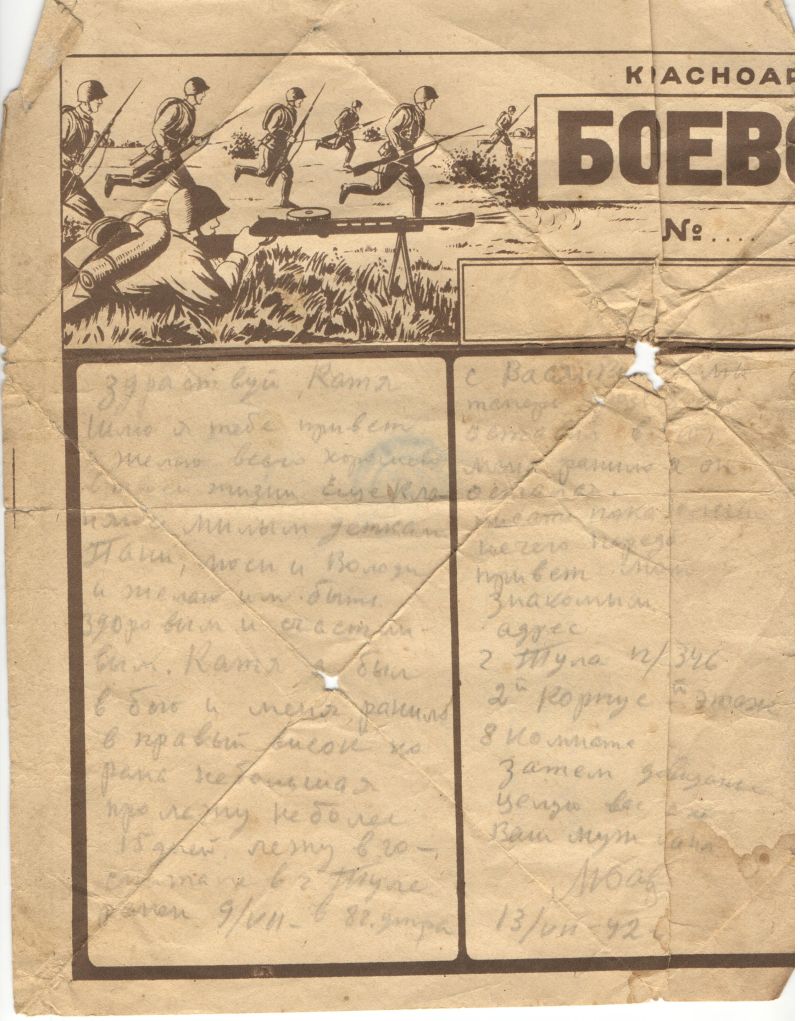 КРАСНОАР
БОЕВО
№ ....
Здраствуй Катя
Шлю я тебе привет
и желаю всего хорошего
в твоей жизни. Еще кла-
няюсь милым деткам
и Володи
и желаю им быть
здоровым и счастли-
вым. Катя, я был
в бою и меня ранило
в правый висок но
рана небольшая
пролежу неболее
15 дней. лежу в го-
спитале в г Туле
ранен 9/VII- в 8 г. утра
с
теперь
меня ранило а он
остался.
писать пока
нечего
привет
знакомым
адрес
г Тула п/ 346
2й Корпус й этаж
8 комната
Затем
целую вас
Ваш муж
13/VII-42